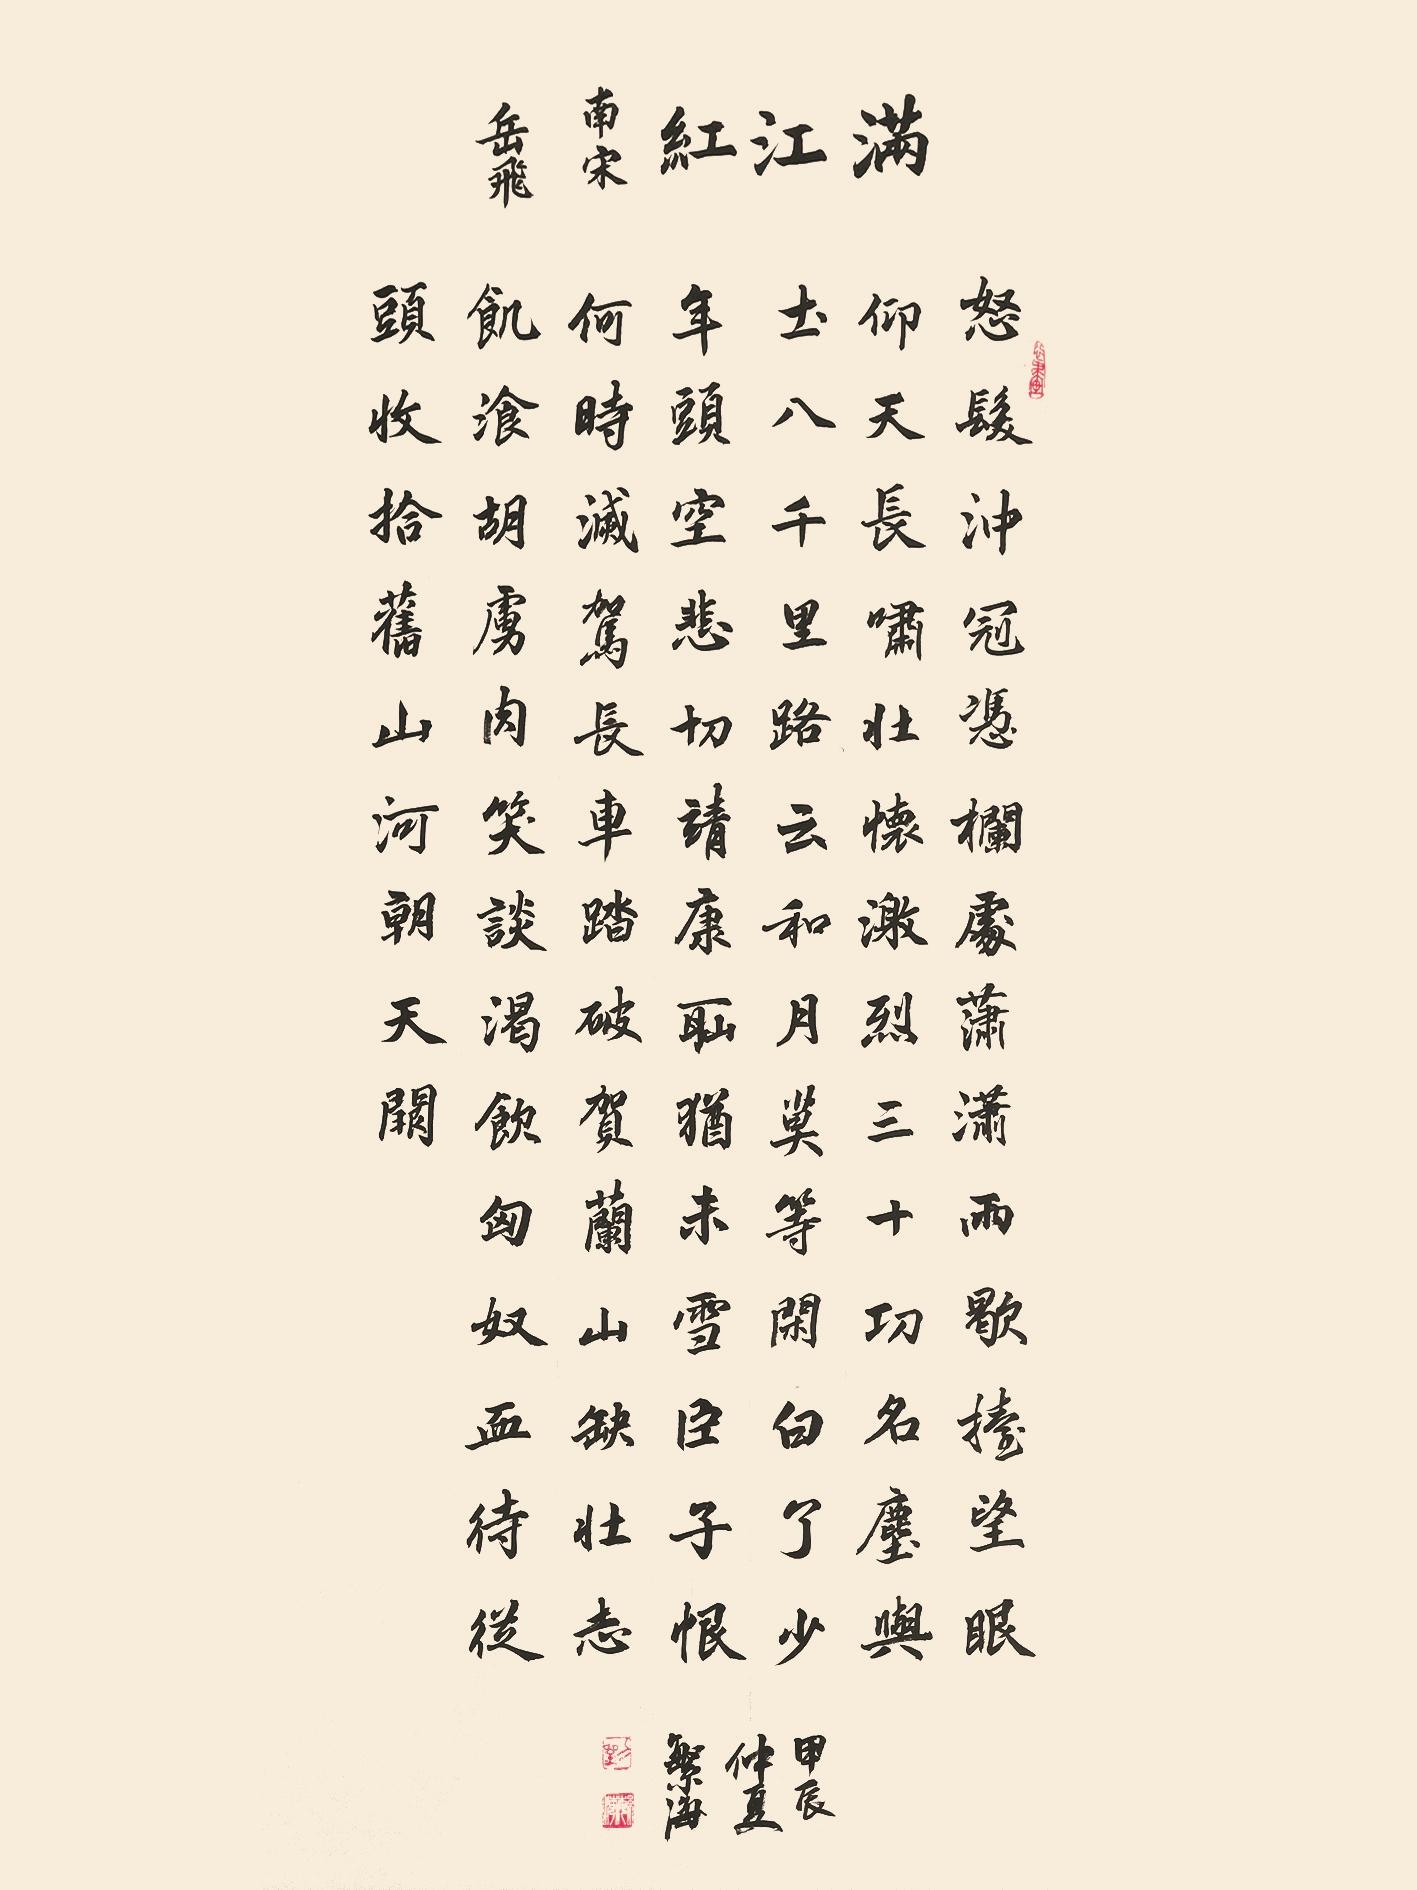 满江紅
南宋
岳飛
怒髮沖冠憑欄處蕭瀟雨歇擡望眼
仰天長嘯壯懷激烈三十功名塵與
土八千里路云和月莫等閑白了少
年頭空悲切靖康恥猶未雪臣子恨
何時滅駕長車踏破賀蘭山缺壯志
飢飡胡虜肉笑談渴飲匈奴血待從
頭收拾舊山河朝天闕
甲辰
仲夏
繁海